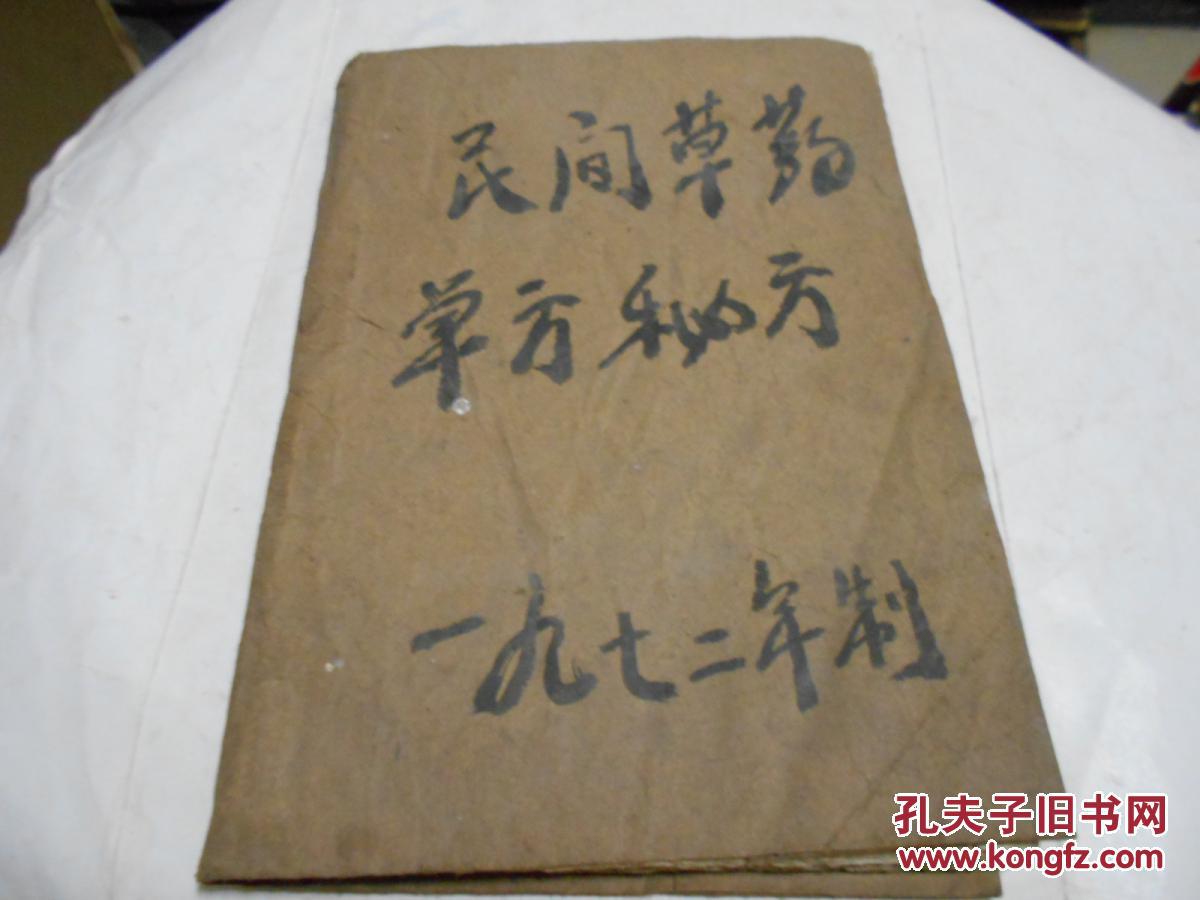 民间草药
单方秘方
一九七二年制
孔夫子旧书网
www.kongfz.com